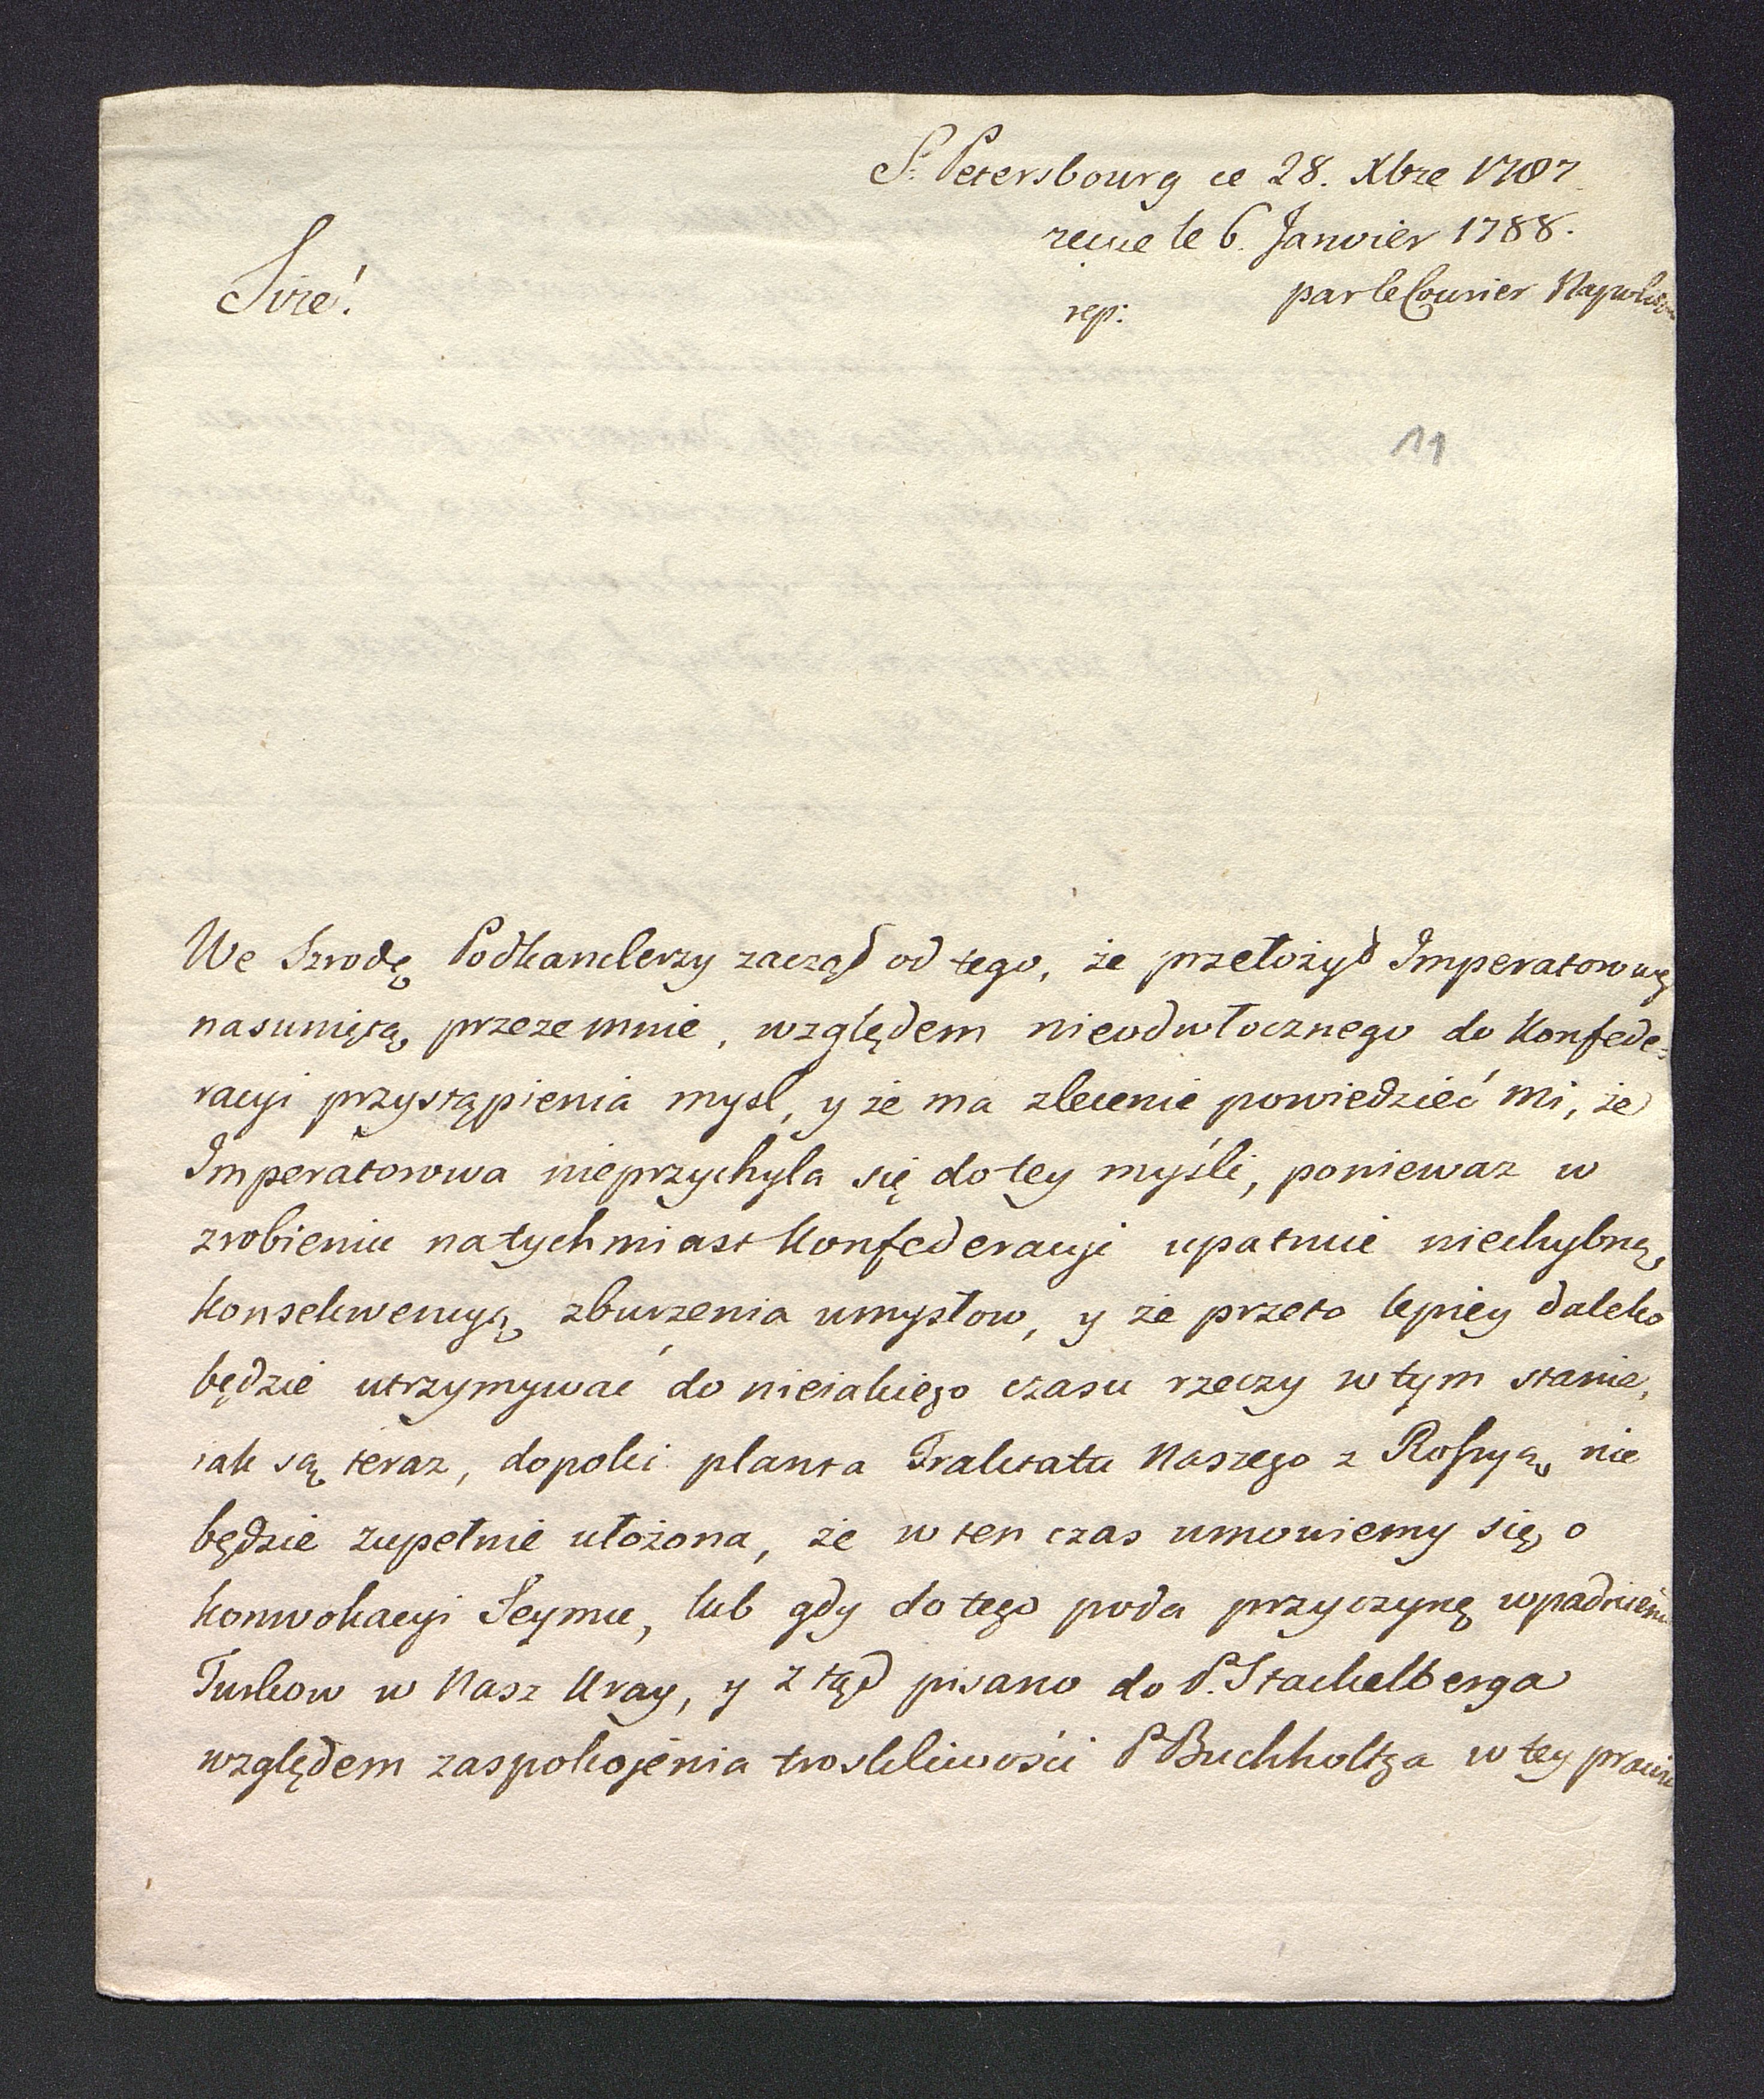 St. Petersbourg ce 28. Xbre 1787
recue le 6. Janvier 1788.
Sire!
rep: par le Courier
11
We Szrodę Podkanclerzy zaczął od tego, że przełożył Imperatorowey
nasuniętą przezemnie, względem nieodwłocznego do Konfede=
racyi przystąpienia mysl, y że ma zlecenie powiedzieć mi, że
Imperatorowa nieprzychyla się do tey myśli, poniewaz w
zrobieniu natychmiast Konfederacyi upatruie niechybną
Konsekwencyą zburzenia umysłow, y że przeto lepiey daleko
będzie utrzymywać do nieiakiego czasu rzeczy w tym stanie,
iak są teraz, dopoki planta Traktatu Naszego z Rossyą nie
będzie zupełnie ułożona, że w ten czas umowiemy się o
Konwokacyi Seymu, lub gdy do tego poda przyczynę wpadnienie
Turkow w Nasz Kray, y ztąd pisano do P. Stackelberga
względem zaspokojenia troskliwości P Buchholtza w tey